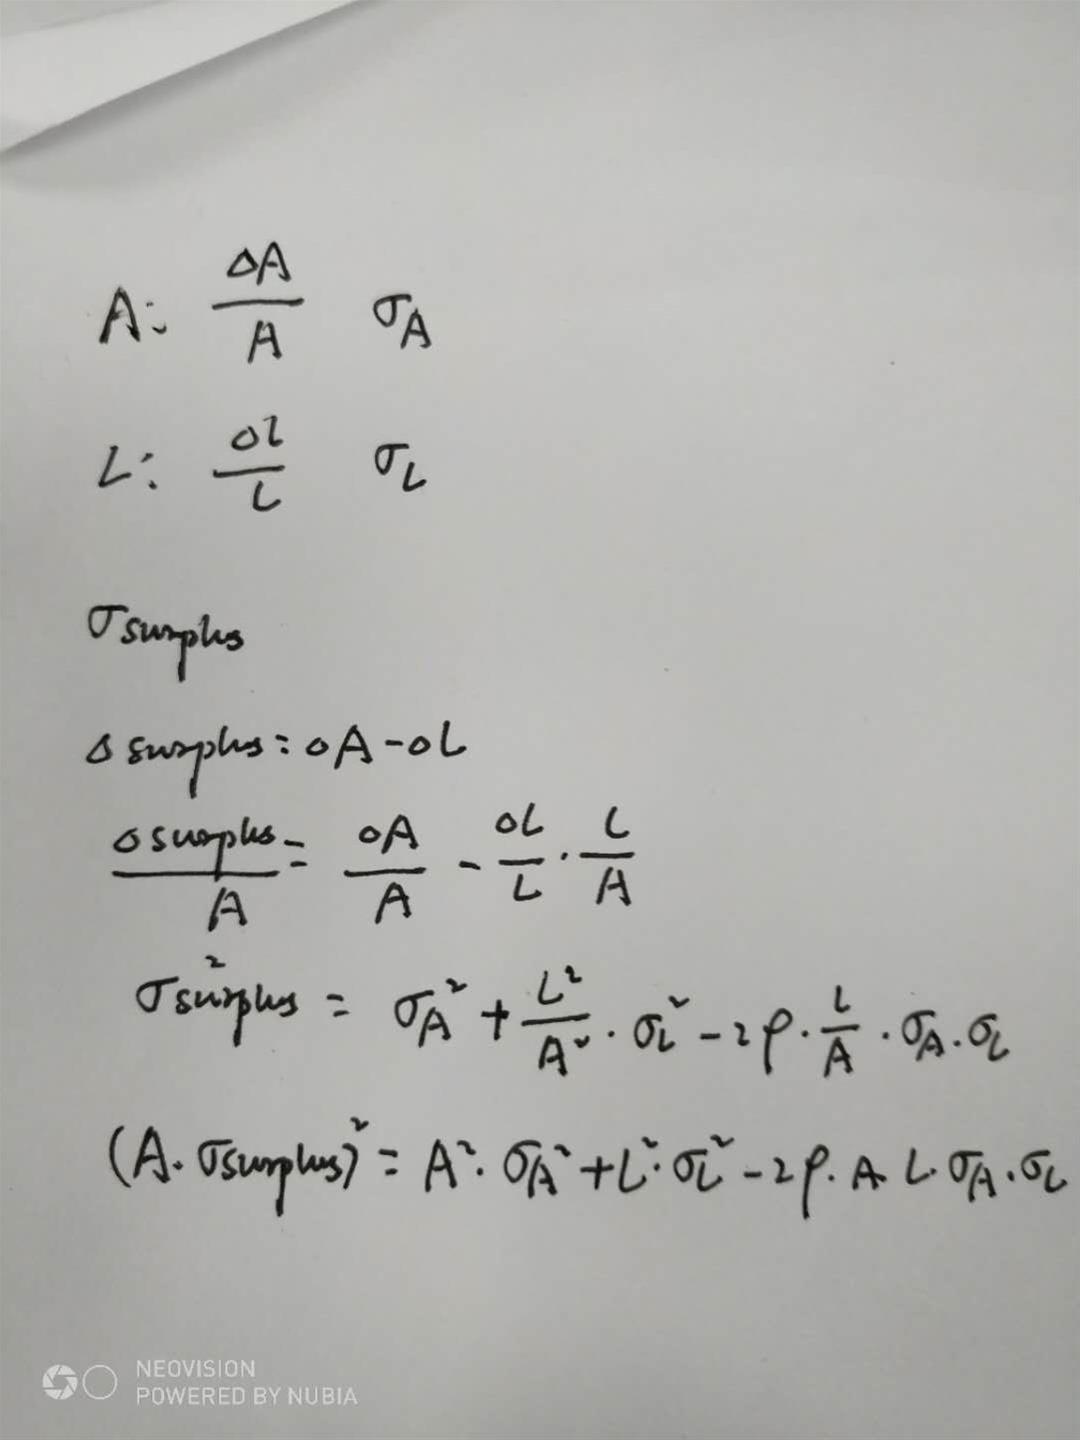 A: ΔA/A σ_A
L: Δl/L σ_L
σ_surplus
Δ surplus = ΔA - ΔL
Δ surplus/A = ΔA/A - ΔL/L · L/A
σ²_surplus = σ_A² + L²/A² · σ_L² - 2ρ · L/A · σ_A · σ_L
(A · σ_surplus)² = A² · σ_A² + L² · σ_L² - 2ρ · A L · σ_A · σ_L
NEOVISION
POWERED BY NUBIA